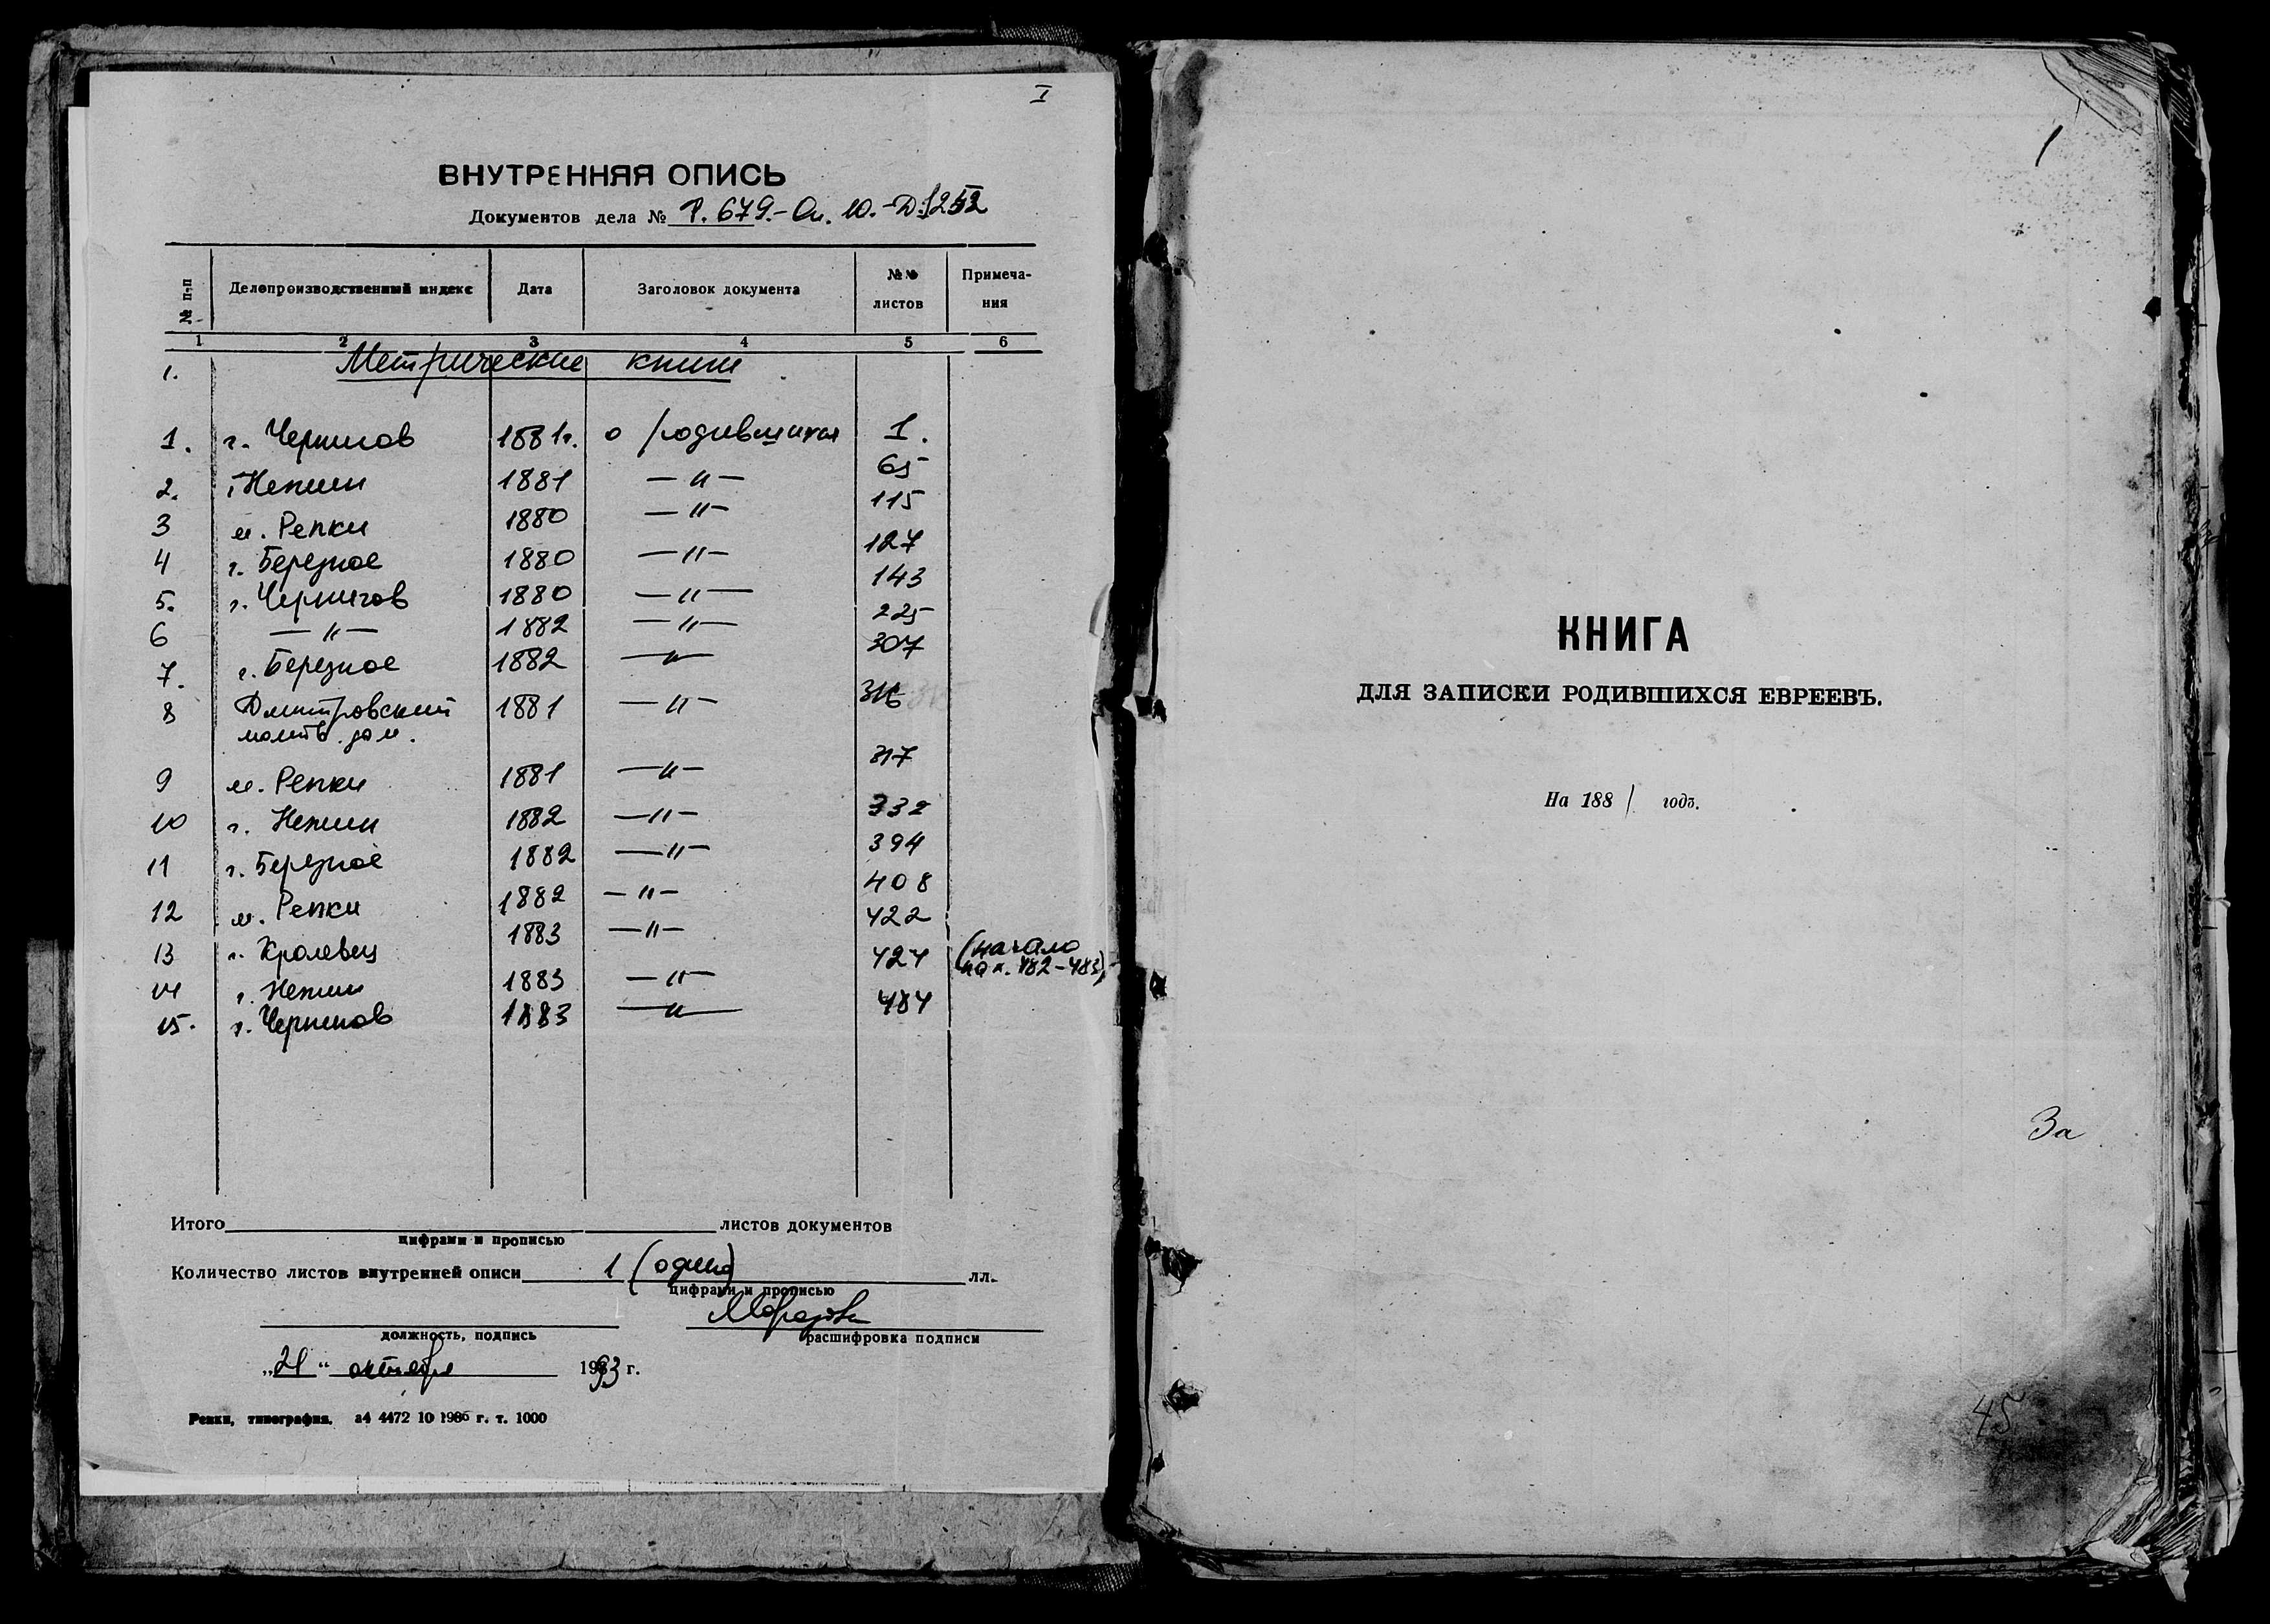 I
ВНУТРЕННЯЯ ОПИСЬ
Документов дела № Р. 679.- Оп. 10.- Д.1252
№ п-п Делопроизводственный индекс Дата Заголовок документа №№ листов Примеча-ния
1 2 3 4 5 6
1. Метрические книги
1. г. Чернигов 1881г. о родившихся 1.
2. г. Нежин 1881 —"— 65
3 м. Репки 1880 —"— 115
4 г. Березное 1880 —"— 127
5. г. Чернигов 1880 —"— 143
6 —"— 1882 —"— 225
7. г. Березное 1882 —"— 307
8 Дмитровский 1881 —"— 316
молитв. дом.
9 м. Репки 1881 —"— 317
10 г. Нежин 1882 —"— 332
11 г. Березное 1882 —"— 394
12 м. Репки 1882 —"— 408
13 г. Кролевец 1883 —"— 422
14 г. Нежин 1883 —"— 424 (начало
на л. 482-483)
15. г. Чернигов 1883 —"— 484
Итого листов документов
цифрами и прописью
Количество листов внутренней описи 1 (один) лл.
цифрами и прописью
должность, подпись расшифровка подписи
„21“ октября 1993 г.
Репки, типография. з4 4472 10 1986 г. т. 1000
1
КНИГА
ДЛЯ ЗАПИСКИ РОДИВШИХСЯ ЕВРЕЕВЪ.
На 1881 годъ.
За
45